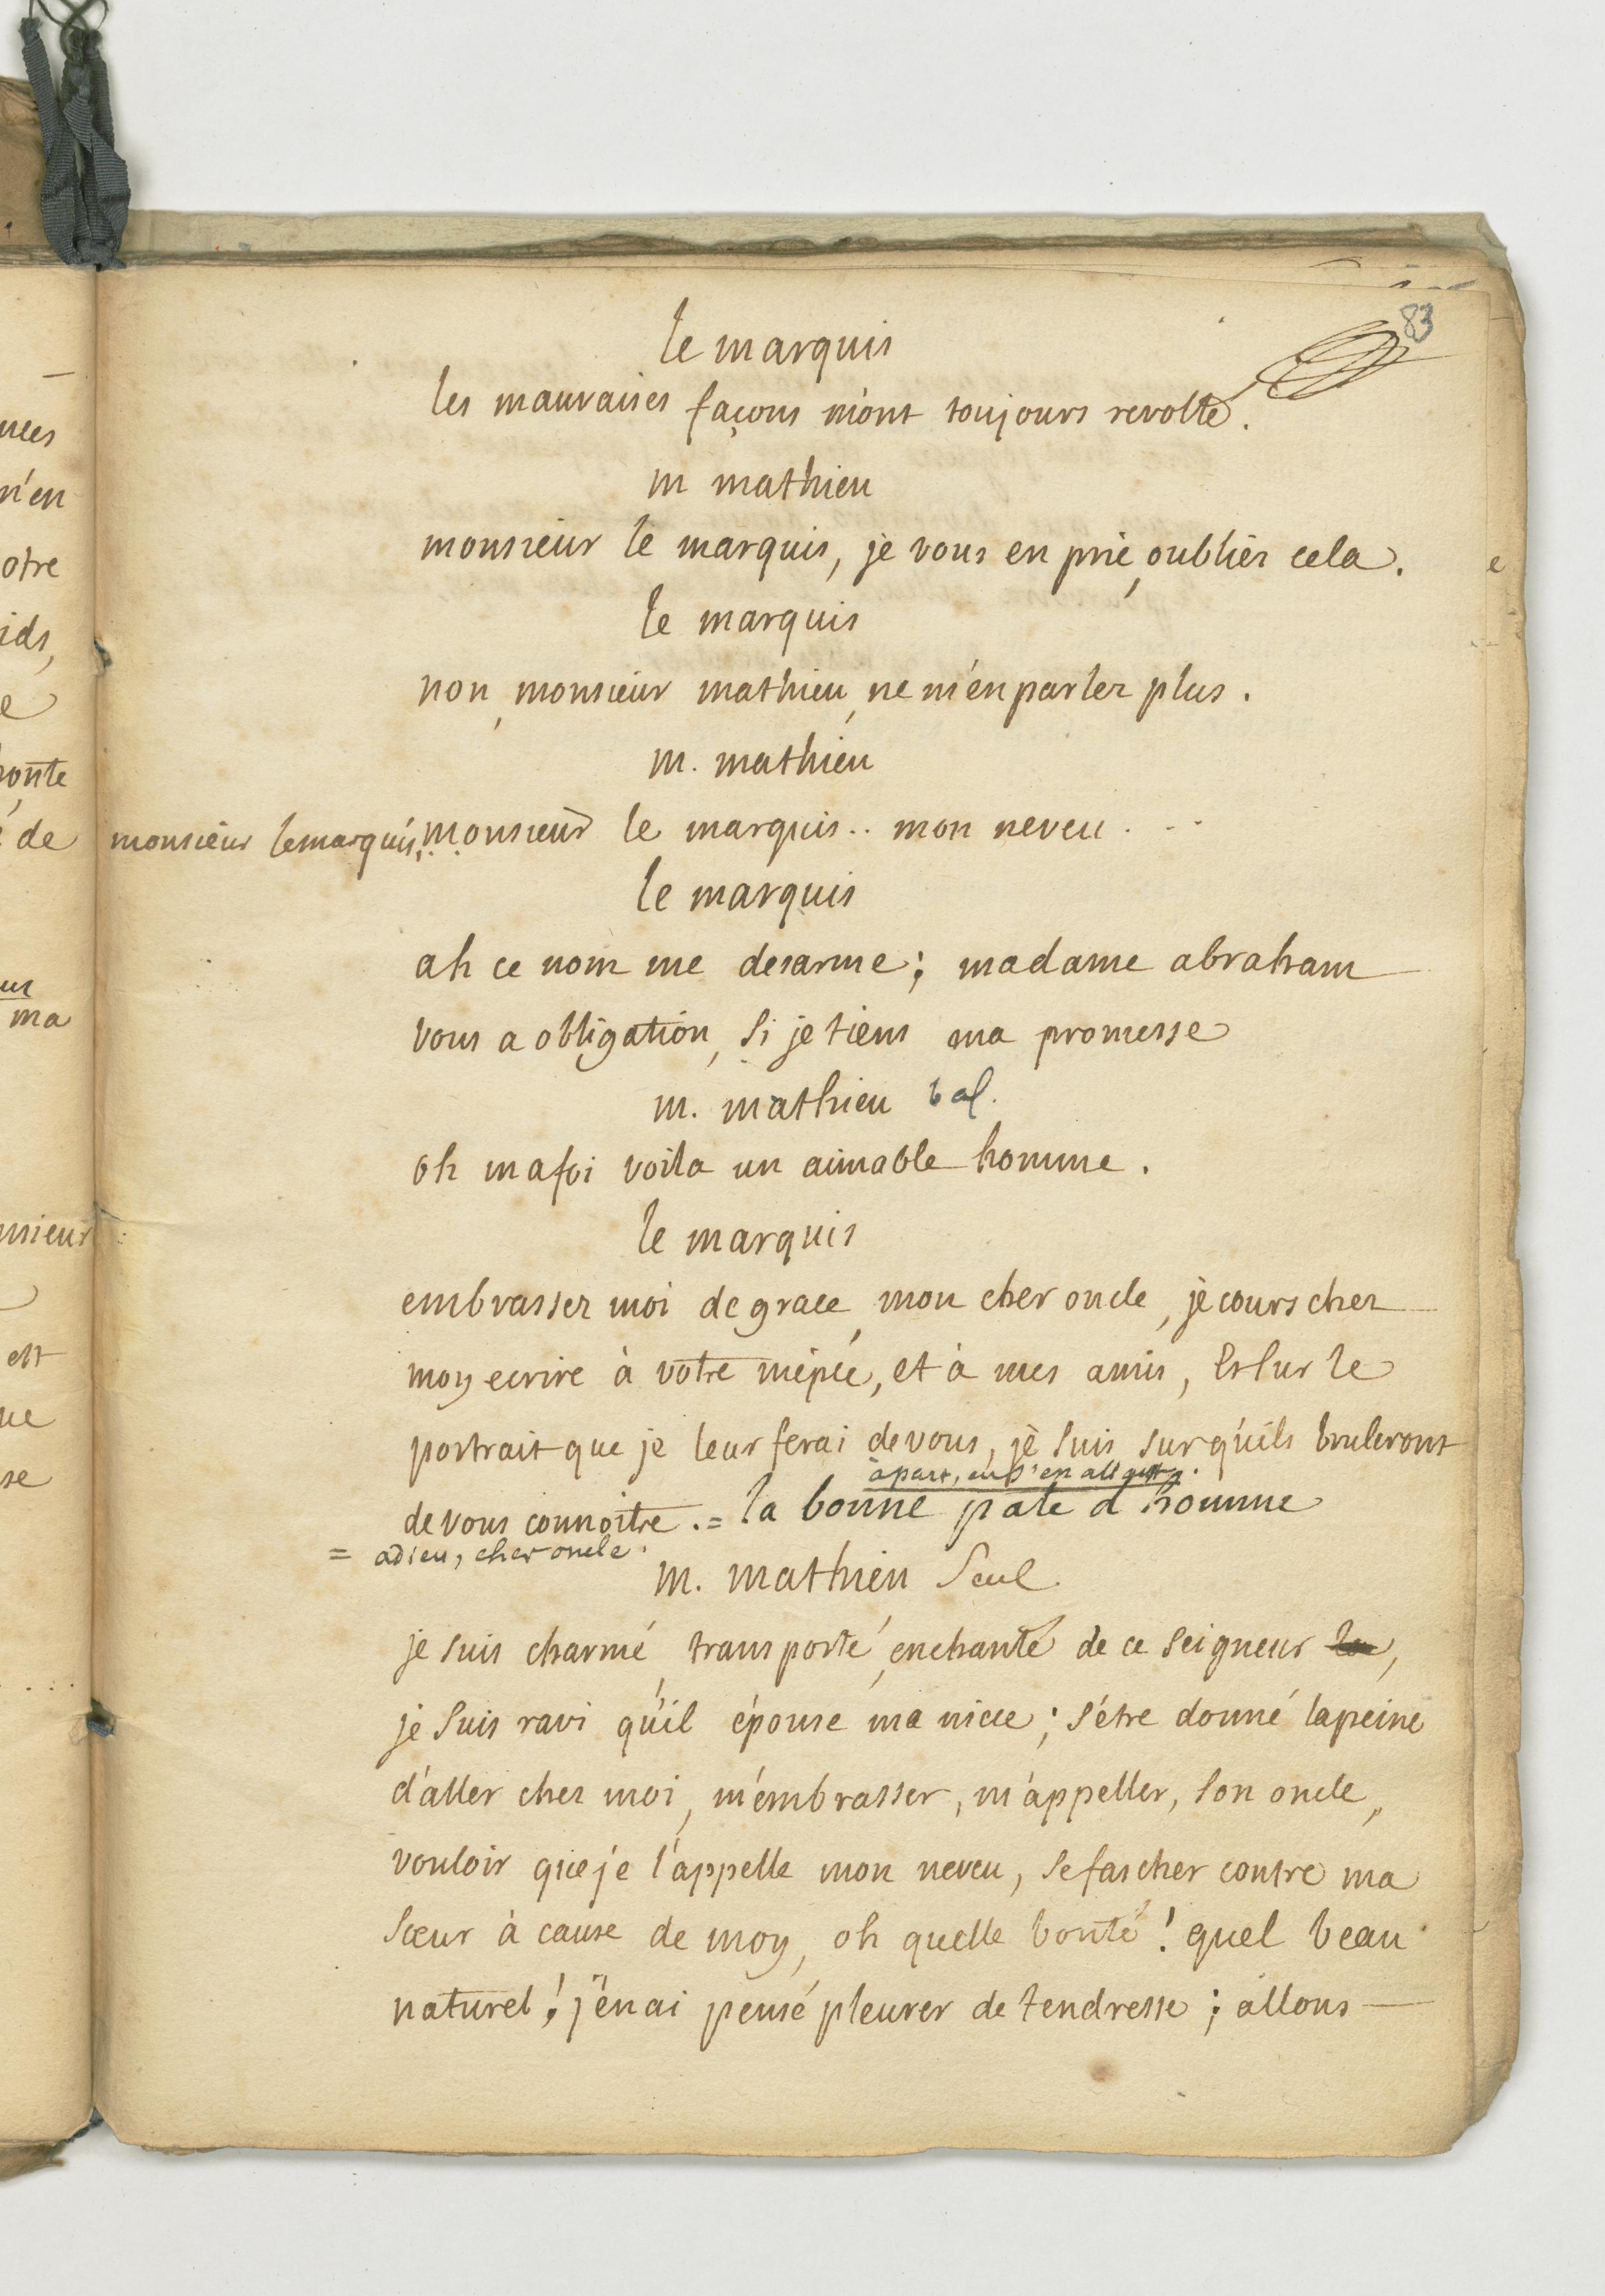 83
le marquis
les mauvaises façons m'ont toujours revolté.
m mathieu
monsieur le marquis, je vous en prie, oubliez cela.
le marquis
non, monsieur mathieu, ne m'en parlez plus.
m. mathieu
monsieur le marquis, .. monsieur le marquis .. mon neveu . . .
le marquis
ah ce nom me desarme ; madame abraham
vous a obligation, si je tiens ma promesse
m. mathieu
oh ma foi voila un aimable homme.
le marquis
embrassez moi de grace, mon cher oncle, je cours chez
moy ecrire à votre niépce, et à mes amis, et sur le
portrait que je leur ferai de vous, je suis sur qu'ils bruleront
àpart, en s'en allant.
de vous connoitre . = la bonne pate d'homme
= adieu, cher oncle.
m. mathieu seul
je suis charmé, transporté, enchanté de ce seigneur la,
je suis ravi qu'il épouse ma niece ; s'étre donné la peine
d'aller chez moi, m'embrasser, m'appeller, son oncle,
vouloir que je l'appelle mon neveu, se fascher contre ma
sœur à cause de moy, oh quelle bonté ! quel beau
naturel ! j'en ai pensé pleurer de tendresse ; allons
nces
n'en
otre
ids,
e
onte
é de
ma
nsieur
est
ue
se